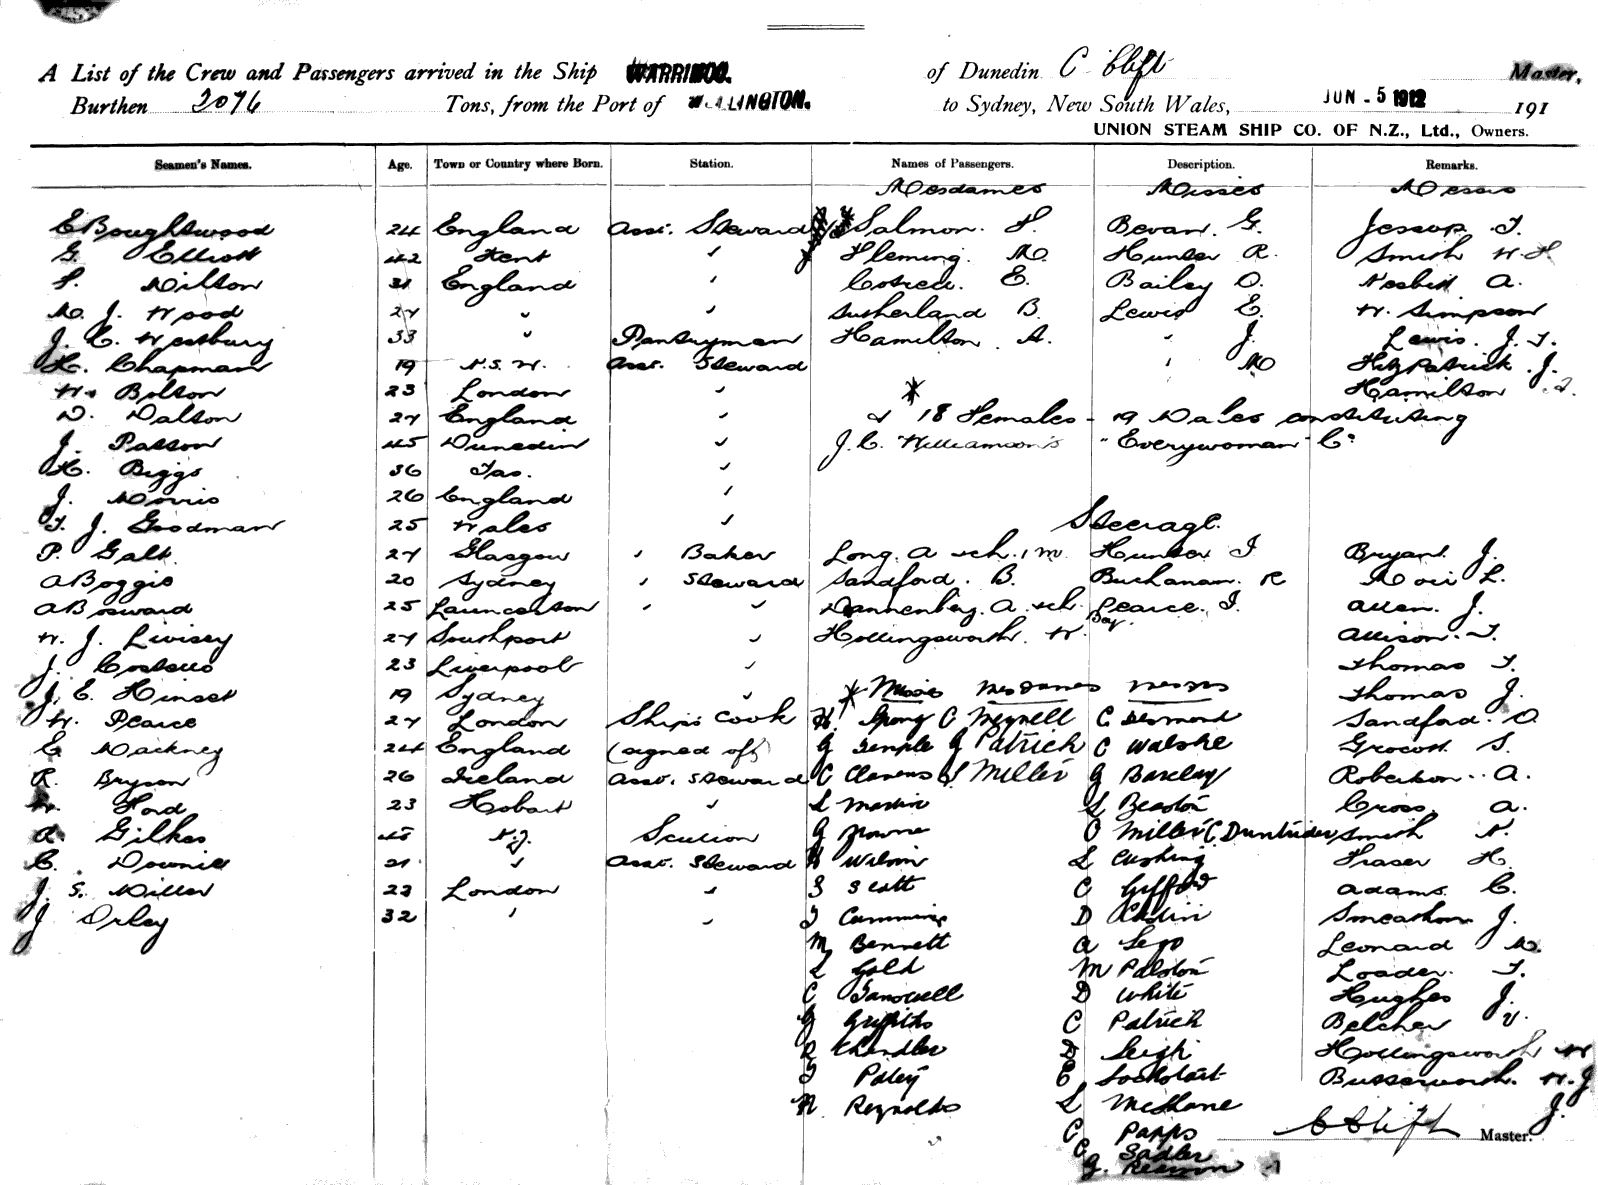 A List of the Crew and Passengers arrived in the Ship WARRIMOO. of Dunedin C Clift Master,
Burthen 2076 Tons, from the Port of WELLINGTON. to Sydney, New South Wales, JUN - 5 1912 191
UNION STEAM SHIP CO. OF N.Z., Ltd., Owners.
Seamen's Names. Age. Town or Country where Born. Station. Names of Passengers. Description. Remarks.
Mesdames Misses Messrs
E Boughtwood 24 England Asst. Steward Salmon. F. Bevan. G. Jessop T.
G. Elliott 42 Kent " Fleming. M. Hunter R. Smith W. H
F. Milson 31 England " Costed. E. Bailey D. Nesbitt A.
M. J. Wood 27 " " Sutherland B. Lewis E. W. Simpson
J. C. Westbury 33 " Pantryman Hamilton. A. " J. Lewis. J. T.
H. Chapman 19 N.S.W. Asst. Steward " M Fitzpatrick. J.
W. Bolton 23 London " * Hamilton
D. Dalson 27 England " & 18 Females - 19 Males constituting
J. Patson 45 Dunedin " J. C. Williamson's "Everywoman" Co
H. Biggs 36 Tas. "
J. Morris 26 England "
T. J. Goodman 25 Wales " Steerage.
P. Galt 27 Glasgow " Baker Long. A & ch. 1 m. Hunter J Bryant. J.
A Boggis 20 Sydney " Steward Sandford. B. Buchanan. R Moir L.
A Bosward 25 Launceston " " Dannenberg. A & ch. Pearce. J. Allen. J.
W. J. Livisey 27 Southport " Hollingsworth. W. Boy. Allison. T.
J. Costello 23 Liverpool " Thomas T.
J. E. Hinset 19 Sydney " * Misses Mesdames Messrs Thomas J.
W. Pearce 27 London Ships Cook H. Spong C Meynell C Desmond Sandford. D.
C Mackney 24 England (signed off) G Temple G Patrick C Walshe Grocott S.
R. Bryson 26 Ireland Asst. Steward C Clarens S Miller G Barclay Robertson. A.
W. Ford 23 Hobart " L Martin L Beaston Cross A.
R. Gilkes 45 N.Z. Scullion G Browne O Miller C Duntrider Smith N.
C. Downie 21 " Asst. Steward H Wilson L Cushing Fraser H.
J. S. Miller 22 London " S Scott C Gifford Adams. C.
J Orley 32 " " J Cummins D Smeaton J.
M Bennett A Sego Leonard M.
L Gold M Palston Loader. T.
C D White Hughes J.
G Griffiths C Patrick Belcher V.
R Chandler D Leigh Hollingsworth W
J Paley E Butterworth. W. J
N Reynolds L McShane J.
C Papps C Clift Master.
C Sadler
G.